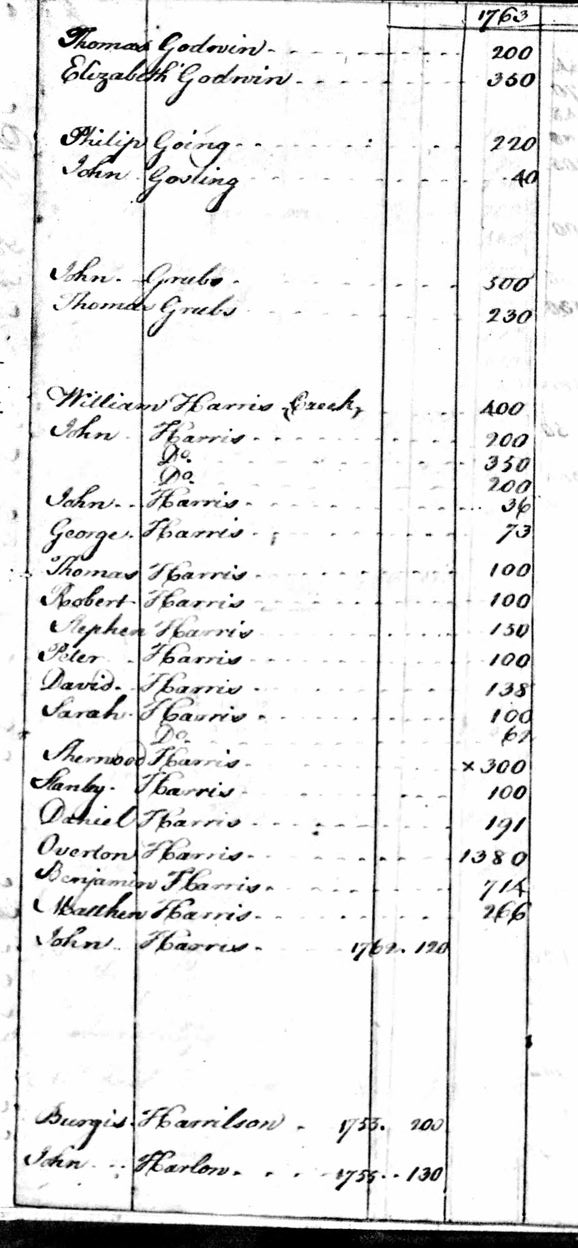 1763
Thomas Godwin 200
Elizabeth Godwin 350
Philip Going 220
John Gosling 40
John Grubs 500
Thomas Grubs 230
William Harris (Creek) 400
John Harris 200
Do. 350
Do. 200
John Harris 36
George Harris 73
Thomas Harris 100
Robert Harris 100
Stephen Harris 150
Peter Harris 100
David Harris 138
Sarah Harris 100
Do. 62
Sherwood Harris ×300
Harris 100
Daniel Harris 191
Overton Harris 1380
Benjamin Harris 714
Matthew Harris 266
John Harris 1762. 120
Burgis Harrilson 1755. 200
John Harlow 1755. 130